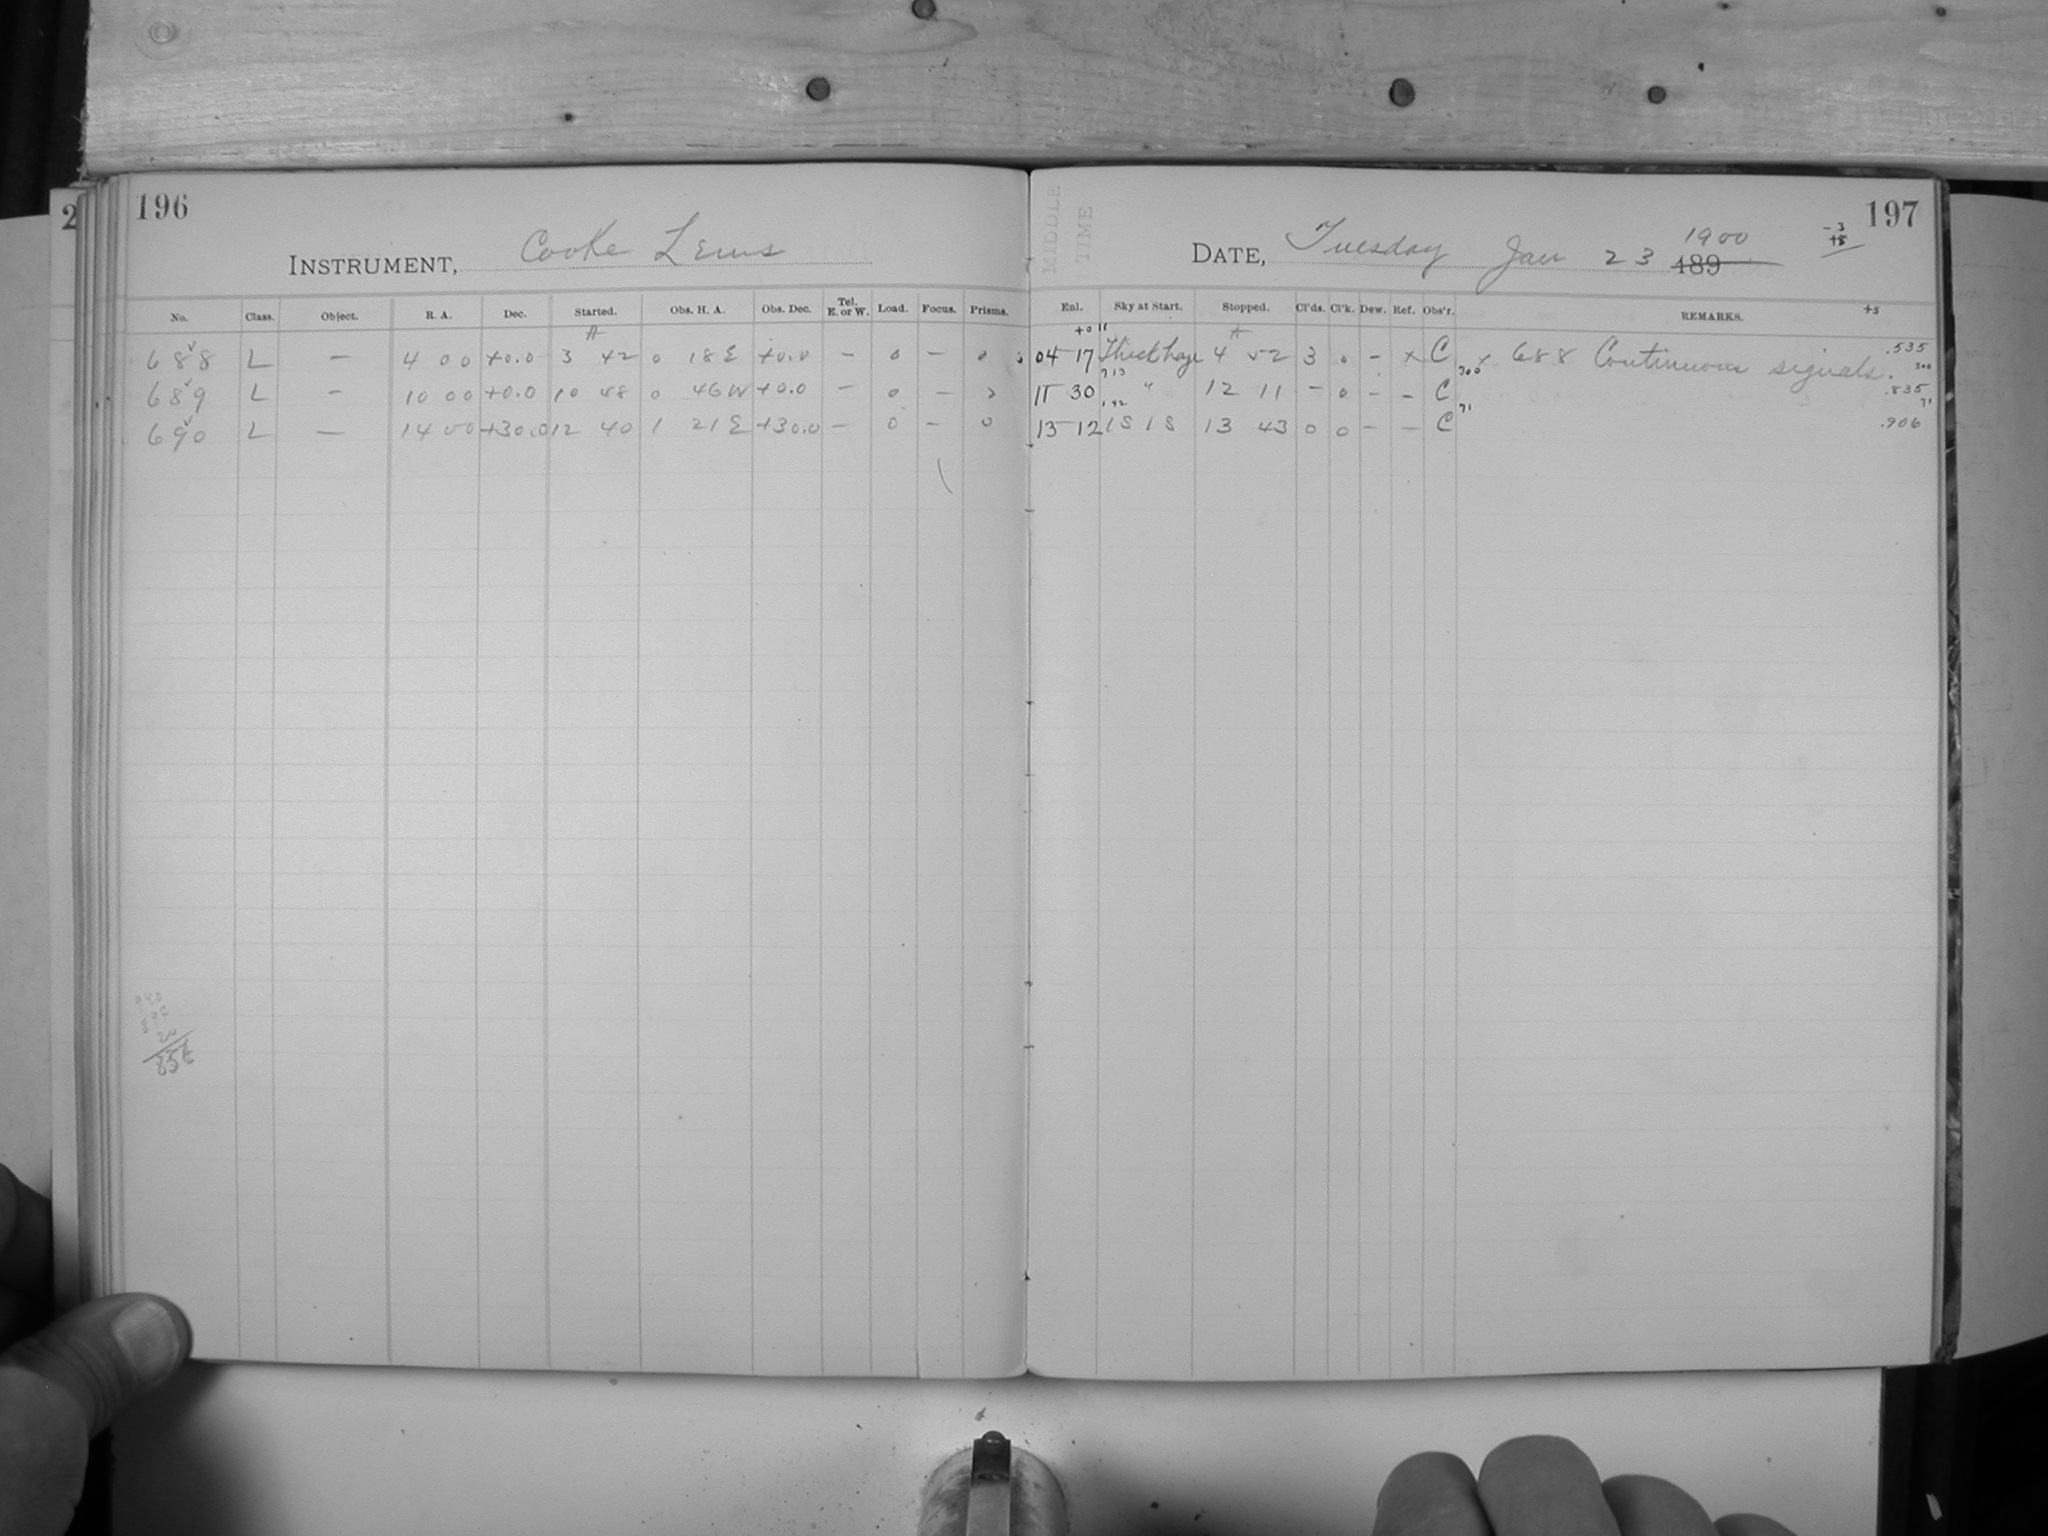 196
INSTRUMENT, Cooke Lens
No. Class. Object. R. A. Dec. Started. Obs. H. A. Obs. Dec. Tel. E. or W. Load. Focus. Prisms.
688 L — 4 00 +0.0 3 42 0 18 E +0.0 — 0 — 0
689 L — 10 00 +0.0 10 48 0 46 W +0.0 — 0 —
690 L — 14 00 +30.0 12 40 1 21 E +30.0 — 0 — 0
MIDDLE TIME
197
DATE, Tuesday Jan 23 1900
189
Enl. Sky at Start. Stopped. Cl'ds. Cl'k. Dew. Ref. Obs'r. REMARKS.
+5
04 17 Thick haze 4 52 3 0 — x C x 688 Continuous signals. .535
300
11 30 " 12 11 — 0 — — C .835
71
13 12 1S 1S 13 43 0 0 — — C .906